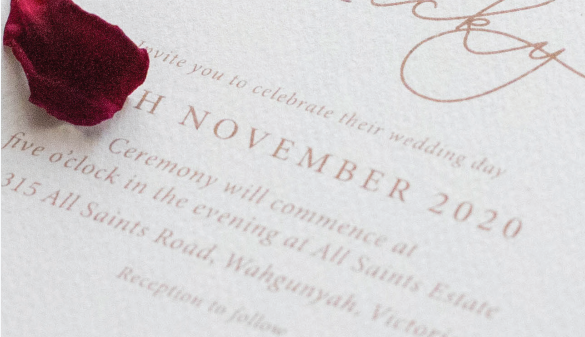 cky
Invite you to celebrate their wedding day
H NOVEMBER 2020
Ceremony will commence at
five o'clock in the evening at All Saints Estate
315 All Saints Road, Wahgunyah, Victori
Reception to follow